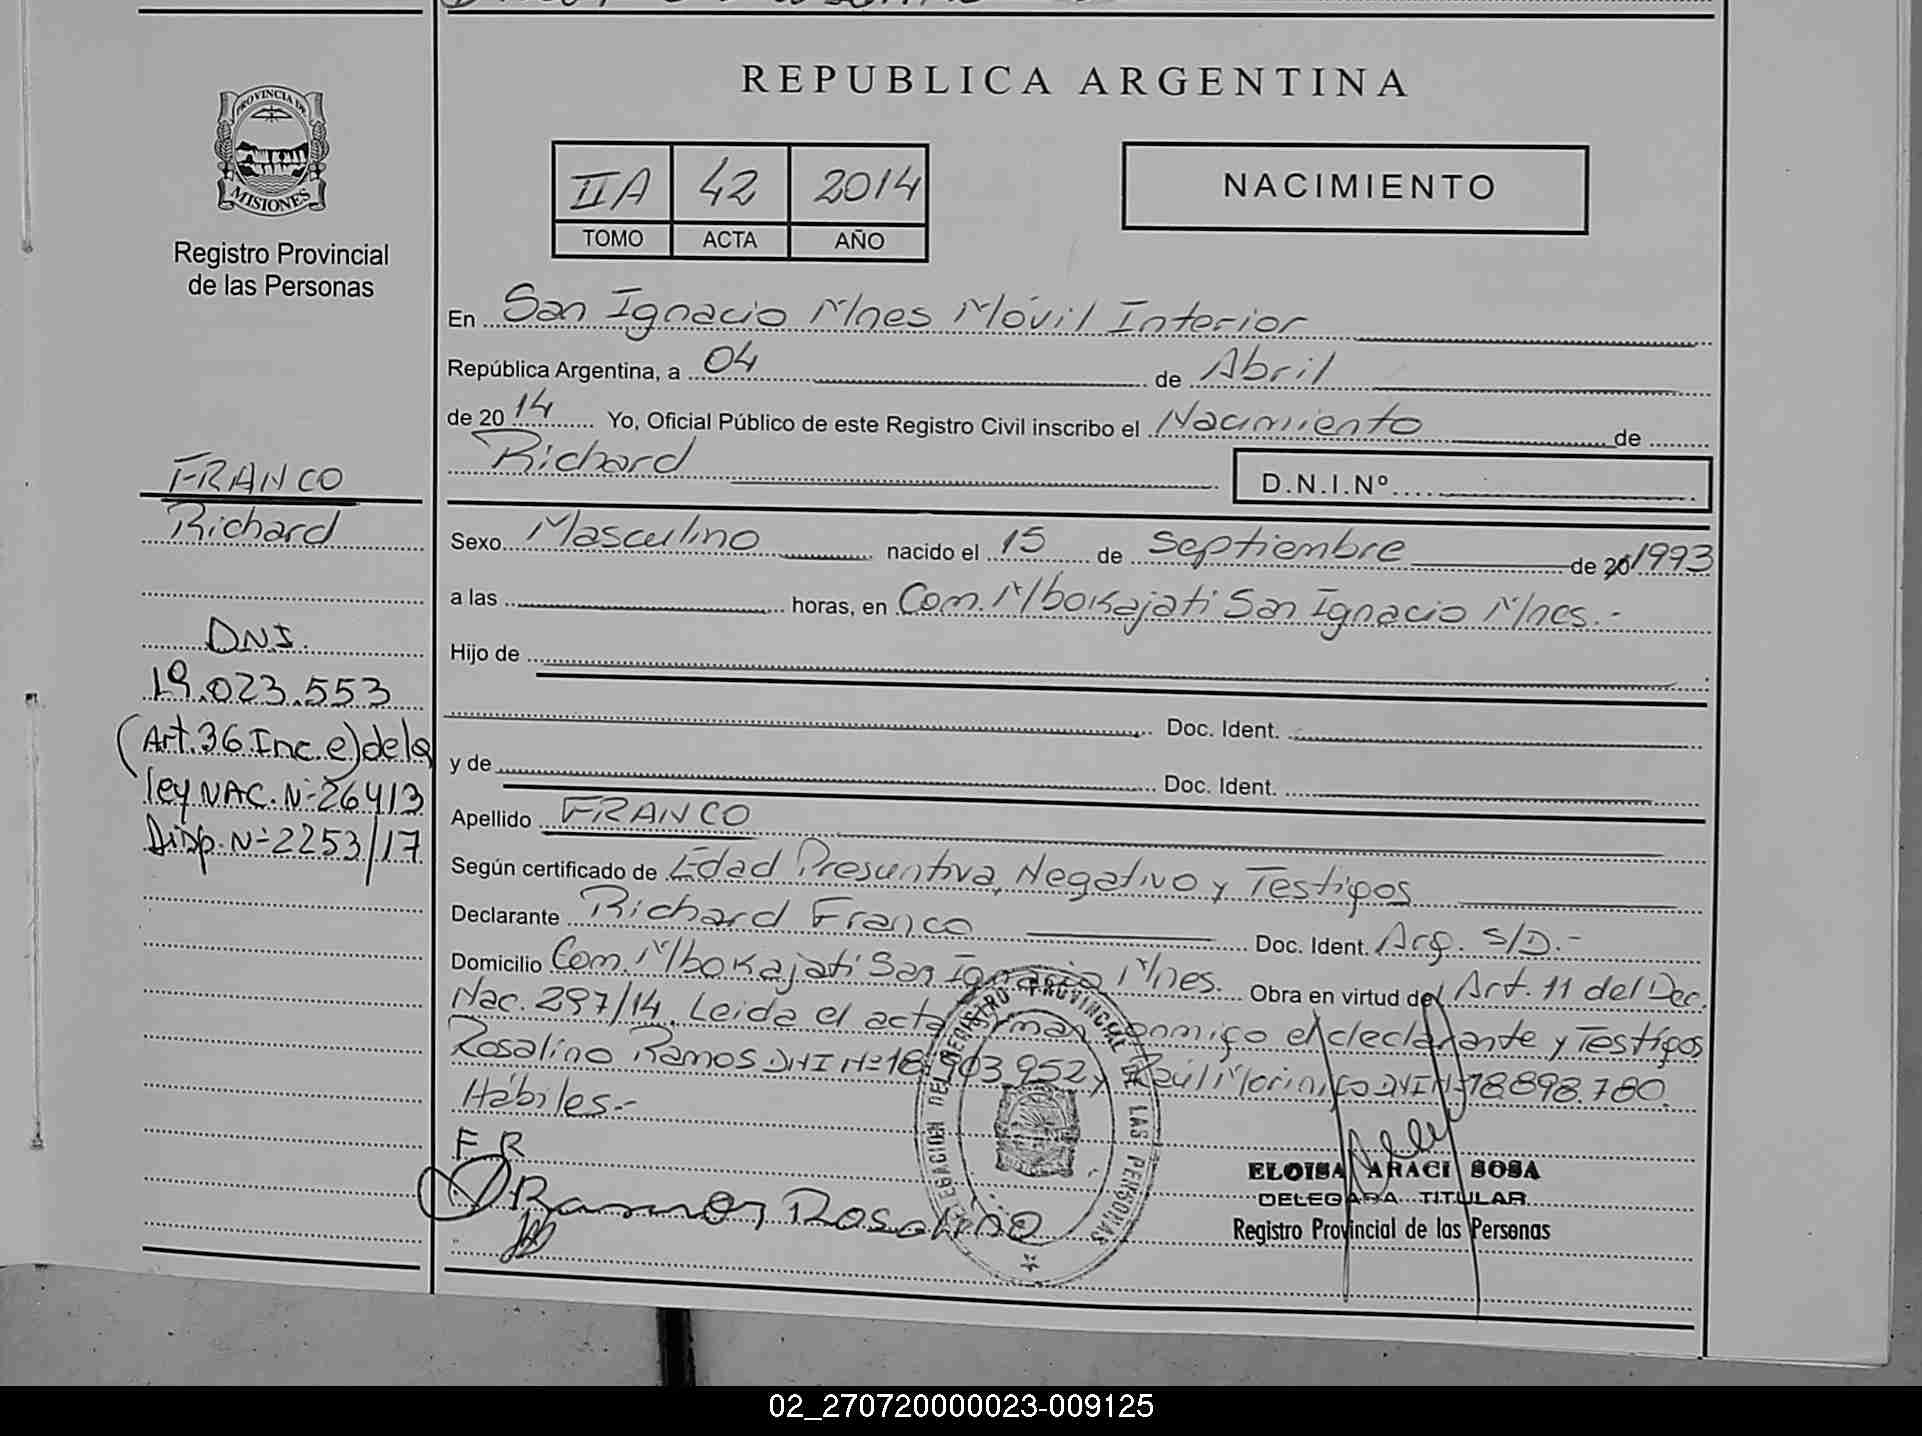 REPUBLICA ARGENTINA
PROVINCIA DE
MISIONES
Registro Provincial
de las Personas
IIA 42 2014
TOMO ACTA AÑO
NACIMIENTO
FRANCO
Richard
DNI.
19.023.553
(Art.36 Inc.e) de la
ley NAC. Nº 26413
Disp. Nº 2253/17
En San Ignacio Mnes Móvil Interior
República Argentina, a 04 de Abril
de 20 14 Yo, Oficial Público de este Registro Civil inscribo el Nacimiento de
Richard D.N.I.Nº
Sexo Masculino nacido el 15 de Septiembre de 20 1993
a las horas, en Com. Mbokajati San Ignacio Mnes.-
Hijo de
Doc. Ident.
y de Doc. Ident.
Apellido FRANCO
Según certificado de Edad Presuntiva, Negativo y Testigos
Declarante Richard Franco Doc. Ident. Arg. S/D.-
Domicilio Com. Mbokajati San Ignacio Mnes. Obra en virtud de Art. 11 del Dec.
Nac. 297/14. Leida el acta firman conmigo el declarante y Testigos
Rosalino Ramos DNI Nº 18.903.952 y Raúl Morinigo DNI Nº 18.898.780.
Hábiles.-
F R
Ramos Rosalino
DELEGACION DEL REGISTRO PROVINCIAL DE LAS PERSONAS
ELOISA ARACI SOSA
DELEGADA TITULAR
Registro Provincial de las Personas
02_270720000023-009125